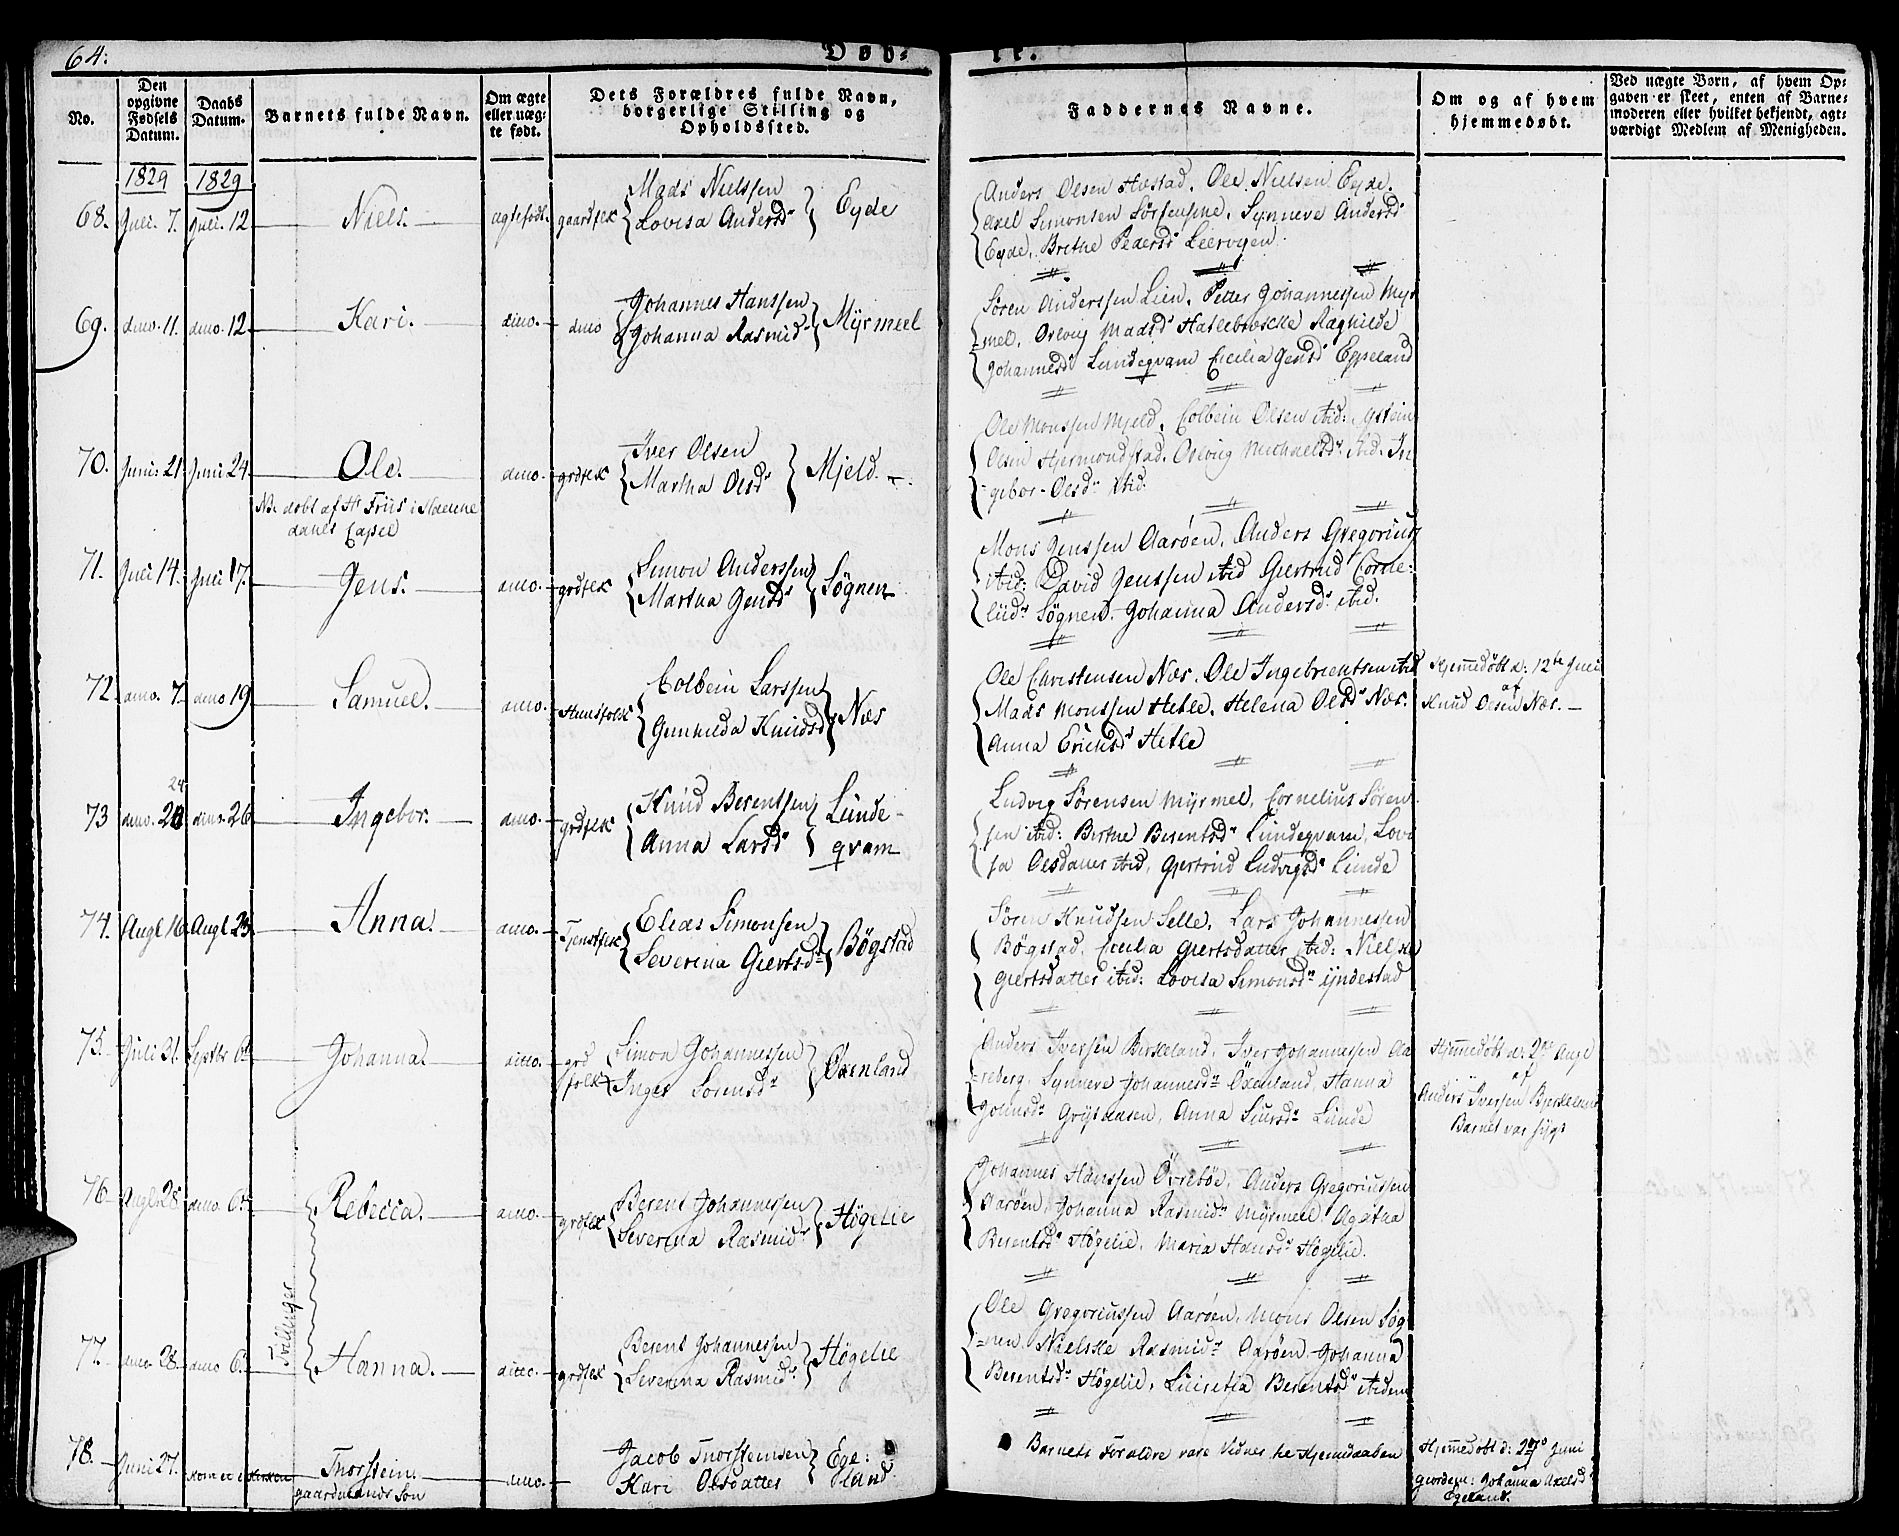 64:
Døb-
te.
No.
Den
opgivne
Fødsels
Datum.
Daabs
Datum.
Barnets fulde Navn.
Om ægte
eller uæg-
te født.
Dets Forældres fulde Navn,
borgerlige Stilling og
Opholdssted.
Faddernes Navne.
Om og af hvem
hjemmedøbt.
Ved uægte Børn, af hvem Op-
gaven er skeet, enten af Barne-
moderen eller hvilket bekjendt, agt-
værdigt Medlem af Menigheden.
1829 1829
68. Juli. 7. Juli. 12 Niels. ægtefødt. gaardfolk Mads Nielssen
Lovisa Andersdr Eyde
Anders Olsen Hæstad, Ole Nielsen Eyde,
Axel Simonsen, Synneve Andersdr
Eyde, Brithe Pedersdr Leervogen.
69. dmo. 11. dmo. 12 Kari. dmo. dmo Johannes Hanssen
Johanna Rasmusdr Myrmeel
Søren Anderssen Lien, Petter Johannessen Myr
mel, Oslaug Madsdr Raghilde
Johannesdr Lundeqvam Cecilia Jensdr Espeland
70. Juni. 21 Juni 24 Ole. dmo. grdfolk Iver Olsen
Martha Olsdr Mjeld.
NB. døbt af Hr Friis i
Capel
Ole Monssen Mjeld, Colbein Olsen ibid: Østein
Olsen Hjermondstad, Oslaug Michaelsdr ibid. In
gebor Olsdr ibid.
71. Juli 14. Juli 17. Jens. dmo. grdfolk Simon Anderssen
Martha Jensdr Søgnen
Mons Jenssen Aarøen, Anders Gregorius
ibid: David Jenssen ibid Giertrud Corne-
liidr Søgnen, Johanna Andersdr ibid.
72. dmo. 7. dmo 19 Samuel. dmo. Huusfolk Colbein Larssen
Gunhilda Knudsdr Næs
Ole Christensen Næs, Ole Ingebrientsen ibid
Mads Monssen Hetle, Helena Olsdr Næs.
Anna Ericksdr Hetle
Hjemmedøbt d: 12te Juli
af
Knud Olsen Næs.
24
73 dmo. dmo. 26 Ingebor. dmo. grdfolk Knud Berentsen
Anna Larsdr Lunde-
qvam
Ludvig Sørensen Myrmel, Cornelius Søren
sen ibid: Birthe Berentsdr Lundeqvam, Lovi
sa Olsdatter ibid, Gjertrud Ludvigsdr Lunde
74. Augt 16 Augt 23. Anna. dmo. Tjenstfolk Elias Simonsen
Severina Giertsdr Bøgstad
Søren Knudsen Selle, Lars Johannessen
Bøgstad, Cecilia Giertsdatter ibid: Nielske
Giertsdatter ibid: Lovisa Simonsdr Yndestad
75. Juli 31. Septbr 6te Johanna. ditto. grd
folk Simon Johannessen
Inger Sørensdr Øxenland
Anders Iversen Birkeland, Iver Johannessen Aa
reberg, Synneve Johannesdr Øxenland, Hanna
Anna Siursdr Lunde
Hjemmedøbt d: 2den Augt
af
Anders Iversen Bjerkeland
Barnet var sygt
76 Augt 28. dmo. 6te Rebecca. dmo. grdfolk Berent Johannessen
Severina Rasmusdr Høgelie
Tvillinger
Johannes Hanssen Øvrebøe, Anders Gregoriussen
Aarøen, Johanna Rasmusdr Myrmeel, Agatha
Berentsdr Høgelie, Maria Hansdr Høgelie.
77. dmo 28. dmo 6te Hanna. ditto. grdfolk Berent Johannessen
Severina Rasmusdr Høgelie
Ole Gregoriussen Aarøen, Mons Olsen Søg
nen Nielske Rasmusdr Aarøen, Johanna
Berentsdr Høgelie, Lucretia Berentsdr ibidem
78. Juni 27. Thorstein. dmo. Jacob Thorsteinsen
Kari Olsdatter Ege:
land.
gaardmands Søn
Barnets Forældre vare Vidner til Hjemdaaben
Hjemmedøbt d: 27de Juni
Johanna Axelsdr
Egeland.